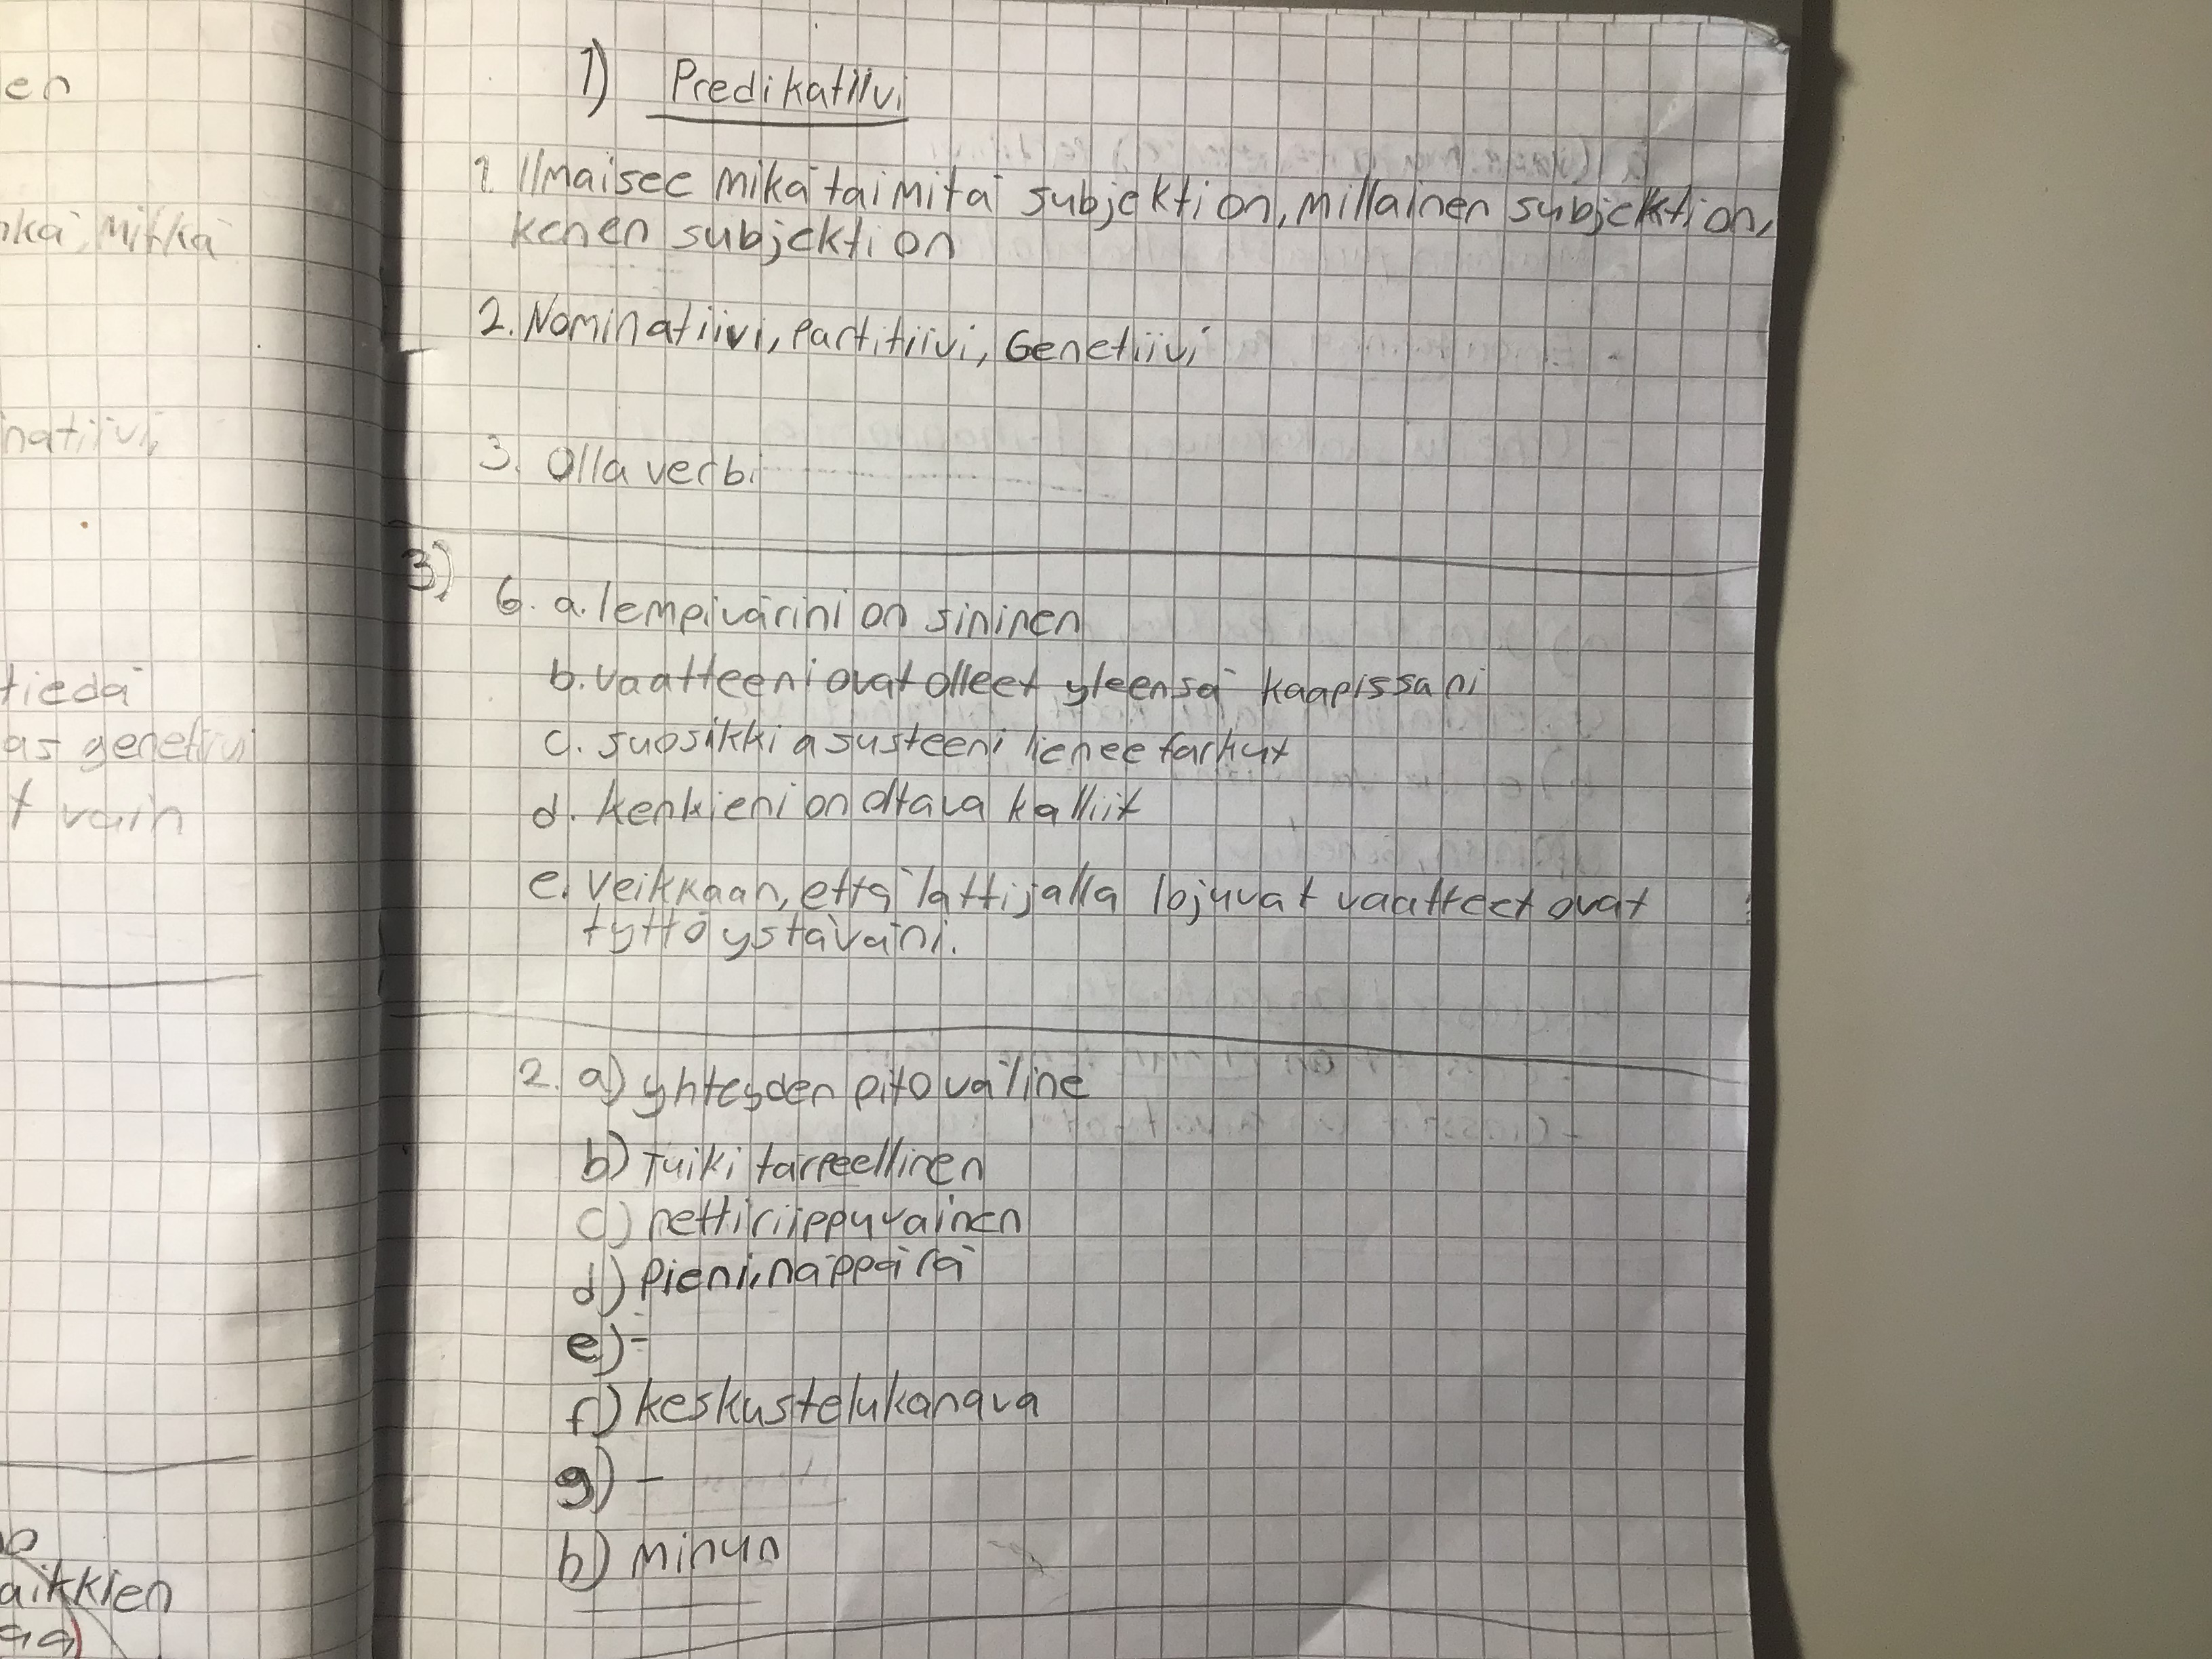 en
mitkä
natiivi,
tiedä
as genetiivi
t vain
aikkien
aa)
1) Predikatiivi
1. Ilmaisee mikä tai mitä subjekti on, millainen subjekti on,
kenen subjekti on
2. Nominatiivi, Partitiivi, Genetiivi
3. Olla verbi
3)
6. a. lempivärini on sininen
b. vaatteeni ovat olleet yleensä kaapissani
c. suosikki asusteeni lienee farkut
d. kenkieni on oltava kalliit
e. Veikkaan, että lattijalla lojuvat vaatteet ovat
tyttöystäväni.
2. a) yhteyden pito väline
b) Tuiki tarpeellinen
c) nettiriippuvainen
d) Pieni, näppärä
e) -
f) keskustelukanava
g) -
h) minun